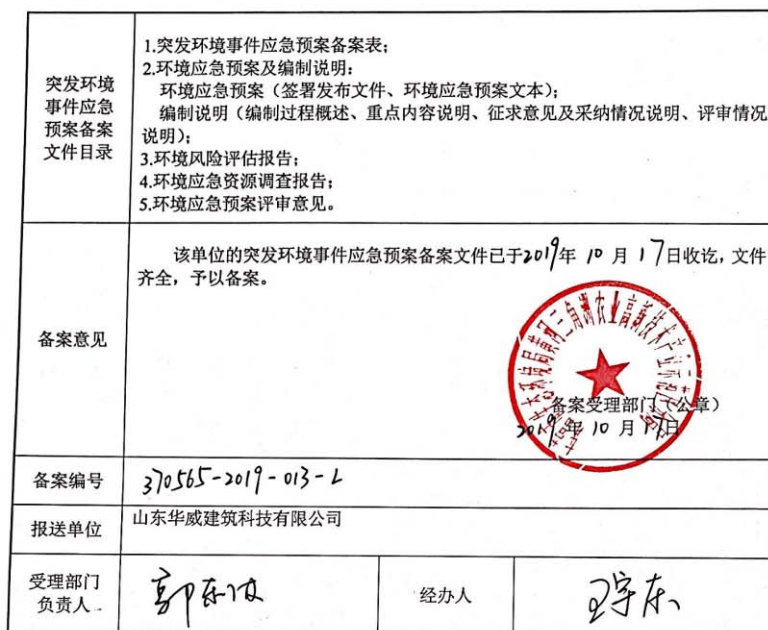 突发环境
事件应急
预案备案
文件目录
1.突发环境事件应急预案备案表；
2.环境应急预案及编制说明：
环境应急预案（签署发布文件、环境应急预案文本）；
编制说明（编制过程概述、重点内容说明、征求意见及采纳情况说明、评审情况
说明）；
3.环境风险评估报告；
4.环境应急资源调查报告；
5.环境应急预案评审意见。
备案意见
该单位的突发环境事件应急预案备案文件已于2019年 10 月 17日收讫，文件
齐全，予以备案。
备案受理部门（公章）
2019年 10 月 17日
备案编号
370565-2019-013-L
报送单位
山东华威建筑科技有限公司
受理部门
负责人
经办人